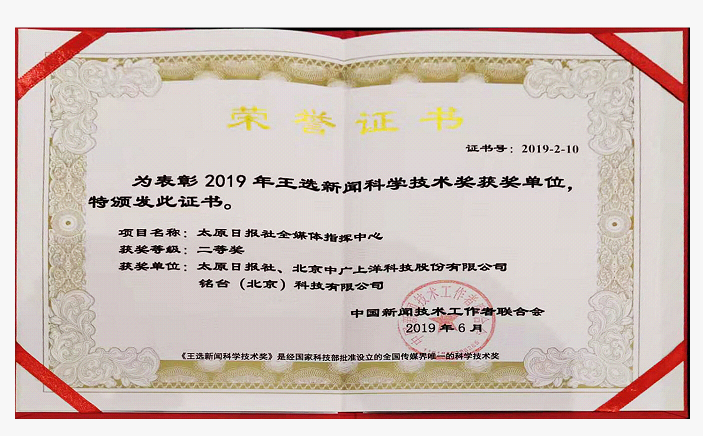 荣誉证书
证书号：2019-2-10
为表彰 2019 年王选新闻科学技术奖获奖单位，
特颁发此证书。
项目名称：太原日报社全媒体指挥中心
获奖等级：二等奖
获奖单位：太原日报社、北京中广上洋科技股份有限公司
铭台（北京）科技有限公司
中国新闻技术工作者联合会
2019 年 6 月
《王选新闻科学技术奖》是经国家科技部批准设立的全国传媒界唯一的科学技术奖